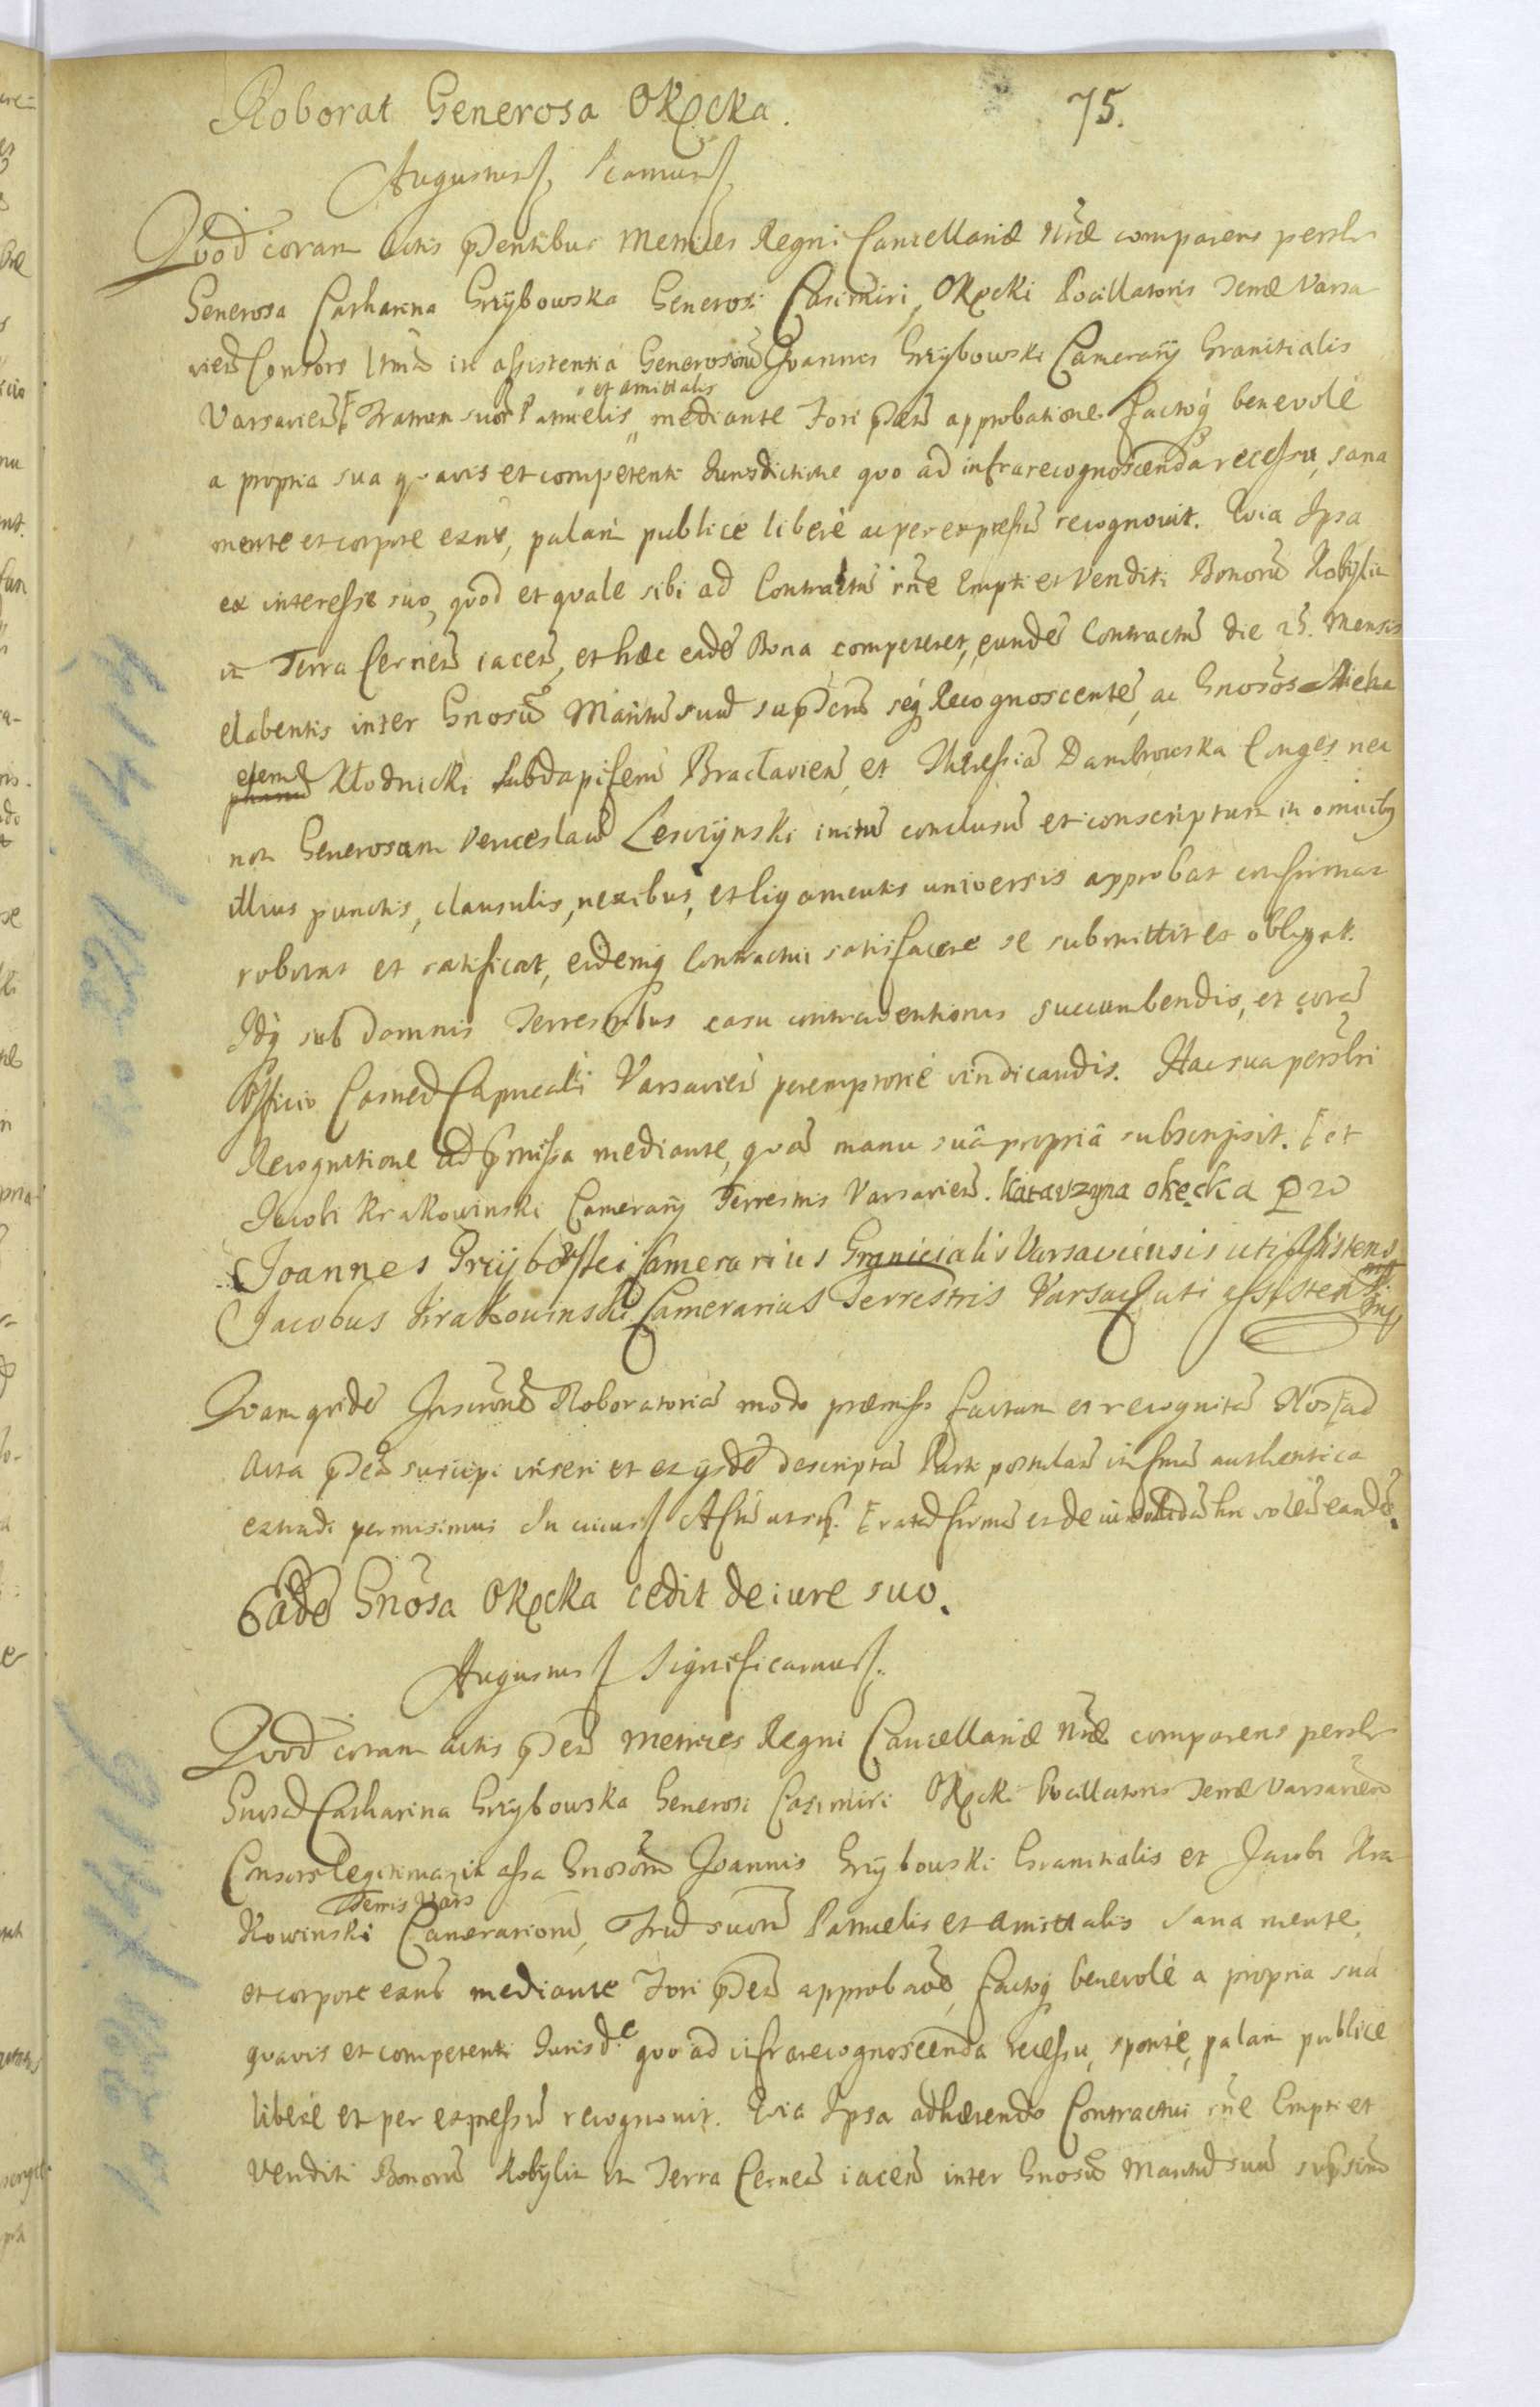 Roborat Generosa Okęcka. 75.
Augustus
Quod coram Actis pntibus Metrices Regni Cancellariæ Nræ comparens persltr
Generosa Catharina Grzybowska Generosi Casimiri Okęcki Pocillatoris Terræ Varsa
vien Consors ltma in assistentia Generosorũ Joannes Grzybowski Camerarÿ Granitialis
et amittalis
Varsavien Fratrum suor Patruelis mediante Fori pntis approbatione factoq benevolé
a propria sua quavis et competenti Jurisdictione quo ad infrarecognoscenda recessu, sana
mente et corpore exns, palam publicé liberé ac per expressũ recognovit. Quia Ipsa
ex interesse suo, quod et quale sibi ad Contractũ rne Empti et Venditi Bonorũ Kobylin
in Terra Cernen iacen, et hæc eade Bona competeret, eundẽ Contractũ die 25. Mensis
elabentis inter Gnosũ Maritũ suũ supscrũ seq Recognoscentẽ, ac Gnosos Micha
elem Kłodnicki Subdapiferũ Bractavien, et Theressia Dambrowska Conges nec
non Generosum Venceslaũ Lesczynski initũ conclusũ et conscriptum in omnibq
illius punctis, clausulis, nexibus, et ligamentis universis approbat confirmat
roborat et ratificat, eidemq Contractui satisfacere se submittit et obligat.
Idq sub damnis Terrestribus casu contraventionis succumbendis, et corã
Officio Castren Capitali Varsavien peremptorié vindicandis. Hac sua persltri
Recognitione ad præmissa mediante, quã manu suâ propriâ subscripsit. et
Jacobi Krakowinski Camerarÿ Terrestris Varsavien. Katarzyna Okęcka
Joannes Grzybowski Camerarius Granicialis Varsaviensis uti Assistens
Jacobus Krakowinski Camerarius Terrestris Varsav uti assistens
Quam quidẽ Roboratoriã modo præmisso factam et recognitã Nos ad
Acta pntia suscipi inseri et ex ÿsdẽ descriptã Parti postulan in formã authentica
extradi permisimus In cuius
Eadẽ Gnosa Okęcka cedit de iure suo.
Augustus Significamus
Quod coram actis pntibus Metrices Regni Cancellariæ Nræ comparens persltr
Catharina Grzybowska Generosi Casimiri Okęcki Pocillatoris Terræ Varsavien
Consors legitima in assa Gnosorũ Joannis Grzybowski Granitialis et Jacobi Kra
Terris Vars
kowinski Camerariorũ, Frũ suorũ Patruelis et Amittalis sana mente
et corpore exns mediante Fori pntis approbaoe, factoq benevolé a propria sua
quavis et competenti Jurisde quo ad infrarecognoscenda recessu, sponté, palam publicé
liberé et per expressũ recognovit. Quia Ipsa adhærendo Contractui rne Empti et
Venditi Bonorũ Kobylin in Terra Cernen iacen inter Gnosũ Maritũ suũ supscrũ